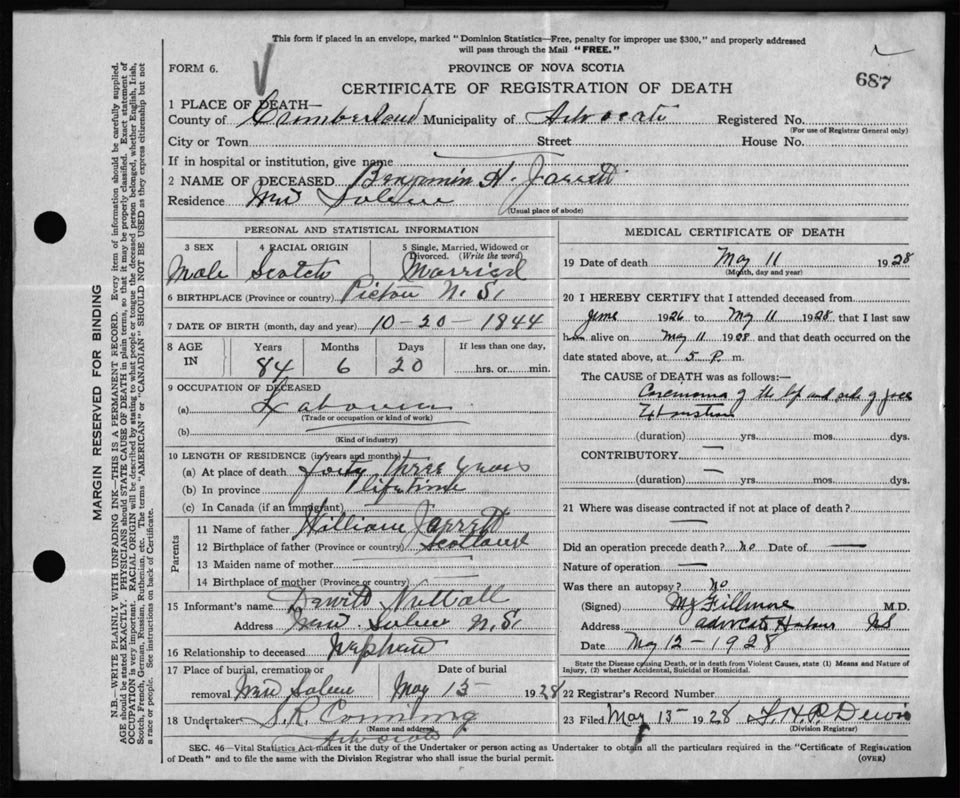 This form if placed in an envelope, marked "Dominion Statistics—Free, penalty for improper use $300," and properly addressed
will pass through the Mail "FREE."
FORM 6.
PROVINCE OF NOVA SCOTIA
687
CERTIFICATE OF REGISTRATION OF DEATH
1 PLACE OF DEATH—
County of Cumberland Municipality of Advocate Registered No.
(For use of Registrar General only)
City or Town Street House No.
If in hospital or institution, give name
2 NAME OF DECEASED Benjamin H. Jarrett
Residence New Salem
(Usual place of abode)
PERSONAL AND STATISTICAL INFORMATION
3 SEX 4 RACIAL ORIGIN 5 Single, Married, Widowed or
Divorced. (Write the word)
Male Scotch Married
6 BIRTHPLACE (Province or country) Pictou N. S.
7 DATE OF BIRTH (month, day and year) 10-20-1844
8 AGE IN Years Months Days If less than one day,
84 6 20 hrs. or min.
9 OCCUPATION OF DECEASED
(a) Labourer
(Trade or occupation or kind of work)
(b)
(Kind of industry)
10 LENGTH OF RESIDENCE (in years and months)
(a) At place of death forty three years
(b) In province lifetime
(c) In Canada (if an immigrant)
Parents
11 Name of father William Jarrett
12 Birthplace of father (Province or country) Scotland
13 Maiden name of mother
14 Birthplace of mother (Province or country)
15 Informant's name Dewitt Nuttall
Address New Salem N.S.
16 Relationship to deceased Nephew
17 Place of burial, cremation or Date of burial
removal New Salem May 13 1928
18 Undertaker S. R. Conning
(Name and address)
Advocate
MEDICAL CERTIFICATE OF DEATH
19 Date of death May 11 1928
(Month, day and year)
20 I HEREBY CERTIFY that I attended deceased from
June 1926 to May 11 1928 that I last saw
him alive on May 11 1928 and that death occurred on the
date stated above, at 5 P. m.
The CAUSE of DEATH was as follows:—
of the lip and side of face
Exhaustion
(duration) yrs. mos. dys.
CONTRIBUTORY
(duration) yrs. mos. dys.
21 Where was disease contracted if not at place of death?
Did an operation precede death? no Date of
Nature of operation
Was there an autopsy? No
(Signed) Fillmore M.D.
Address Advocate Harbour NS
Date May 12-1928
State the Disease causing Death, or in death from Violent Causes, state (1) Means and Nature of
Injury, (2) whether Accidental, Suicidal or Homicidal.
22 Registrar's Record Number
23 Filed May 15 1928
(Division Registrar)
SEC. 46—Vital Statistics Act makes it the duty of the Undertaker or person acting as Undertaker to obtain all the particulars required in the "Certificate of Registration
of Death" and to file the same with the Division Registrar who shall issue the burial permit.
(OVER)
MARGIN RESERVED FOR BINDING
N.B.—WRITE PLAINLY WITH UNFADING INK—THIS IS A PERMANENT RECORD. Every item of information should be carefully supplied.
AGE should be stated EXACTLY. PHYSICIANS should STATE CAUSE OF DEATH in plain terms, so that it may be properly classified. Exact statement of
OCCUPATION is very important. RACIAL ORIGIN will be described by stating to what people or tongue the deceased person belonged, whether English, Irish,
Scotch, French, German, Russian, Ruthenian, etc. The terms "AMERICAN" or "CANADIAN" SHOULD NOT BE USED as they express citizenship but not
a race or people. See instructions on back of Certificate.